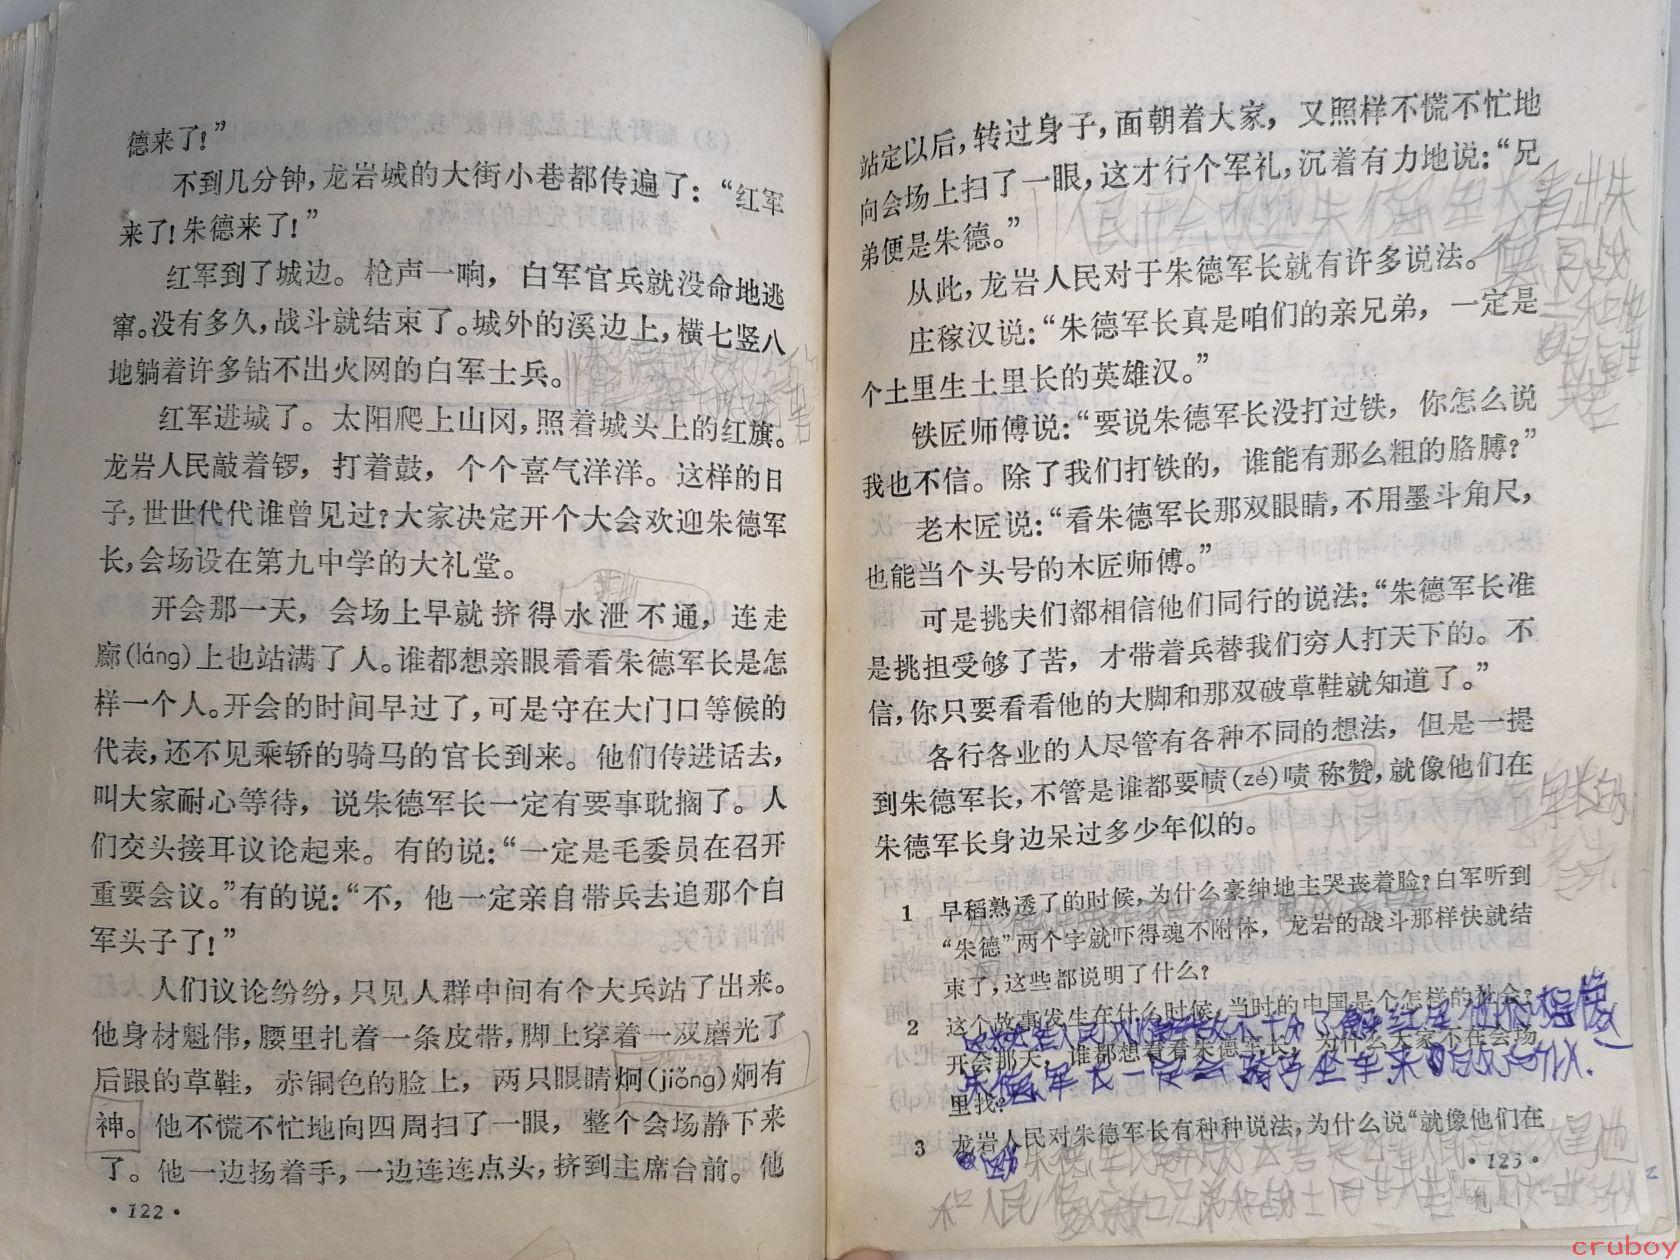 德来了！”
不到几分钟，龙岩城的大街小巷都传遍了：“红军
来了！朱德来了！”
红军到了城边。枪声一响，白军官兵就没命地逃
窜。没有多久，战斗就结束了。城外的溪边上，横七竖八
地躺着许多钻不出火网的白军士兵。
红军进城了。太阳爬上山冈，照着城头上的红旗。
龙岩人民敲着锣，打着鼓，个个喜气洋洋。这样的日
子，世世代代谁曾见过？大家决定开个大会欢迎朱德军
长，会场设在第九中学的大礼堂。
开会那一天，会场上早就挤得水泄不通，连走
廊(láng)上也站满了人。谁都想亲眼看看朱德军长是怎
样一个人。开会的时间早过了，可是守在大门口等候的
代表，还不见乘轿的骑马的官长到来。他们传进话去，
叫大家耐心等待，说朱德军长一定有要事耽搁了。人
们交头接耳议论起来。有的说：“一定是毛委员在召开
重要会议。”有的说：“不，他一定亲自带兵去追那个白
军头子了！”
人们议论纷纷，只见人群中间有个大兵站了出来。
他身材魁伟，腰里扎着一条皮带，脚上穿着一双磨光了
后跟的草鞋，赤铜色的脸上，两只眼睛炯(jiǒng)炯有
神。他不慌不忙地向四周扫了一眼，整个会场静下来
了。他一边扬着手，一边连连点头，挤到主席台前。他
·122·
站定以后，转过身子，面朝着大家，又照样不慌不忙地
向会场上扫了一眼，这才行个军礼，沉着有力地说：“兄
弟便是朱德。”
从此，龙岩人民对于朱德军长就有许多说法。
庄稼汉说：“朱德军长真是咱们的亲兄弟，一定是
个土里生土里长的英雄汉。”
铁匠师傅说：“要说朱德军长没打过铁，你怎么说
我也不信。除了我们打铁的，谁能有那么粗的胳膊？”
老木匠说：“看朱德军长那双眼睛，不用墨斗角尺，
也能当个头号的木匠师傅。”
可是挑夫们都相信他们同行的说法：“朱德军长准
是挑担受够了苦，才带着兵替我们穷人打天下的。不
信，你只要看看他的大脚和那双破草鞋就知道了。”
各行各业的人尽管有各种不同的想法，但是一提
到朱德军长，不管是谁都要啧(zé)啧称赞，就像他们在
朱德军长身边呆过多少年似的。
1 早稻熟透了的时候，为什么豪绅地主哭丧着脸？白军听到
“朱德”两个字就吓得魂不附体，龙岩的战斗那样快就结
束了，这些都说明了什么？
2 这个故事发生在什么时候，当时的中国是个怎样的社会？
开会那天，谁都想看看朱德军长，为什么大家不在会场
里找？
3 龙岩人民对朱德军长有种种说法，为什么说“就像他们在
·123·
cruboy